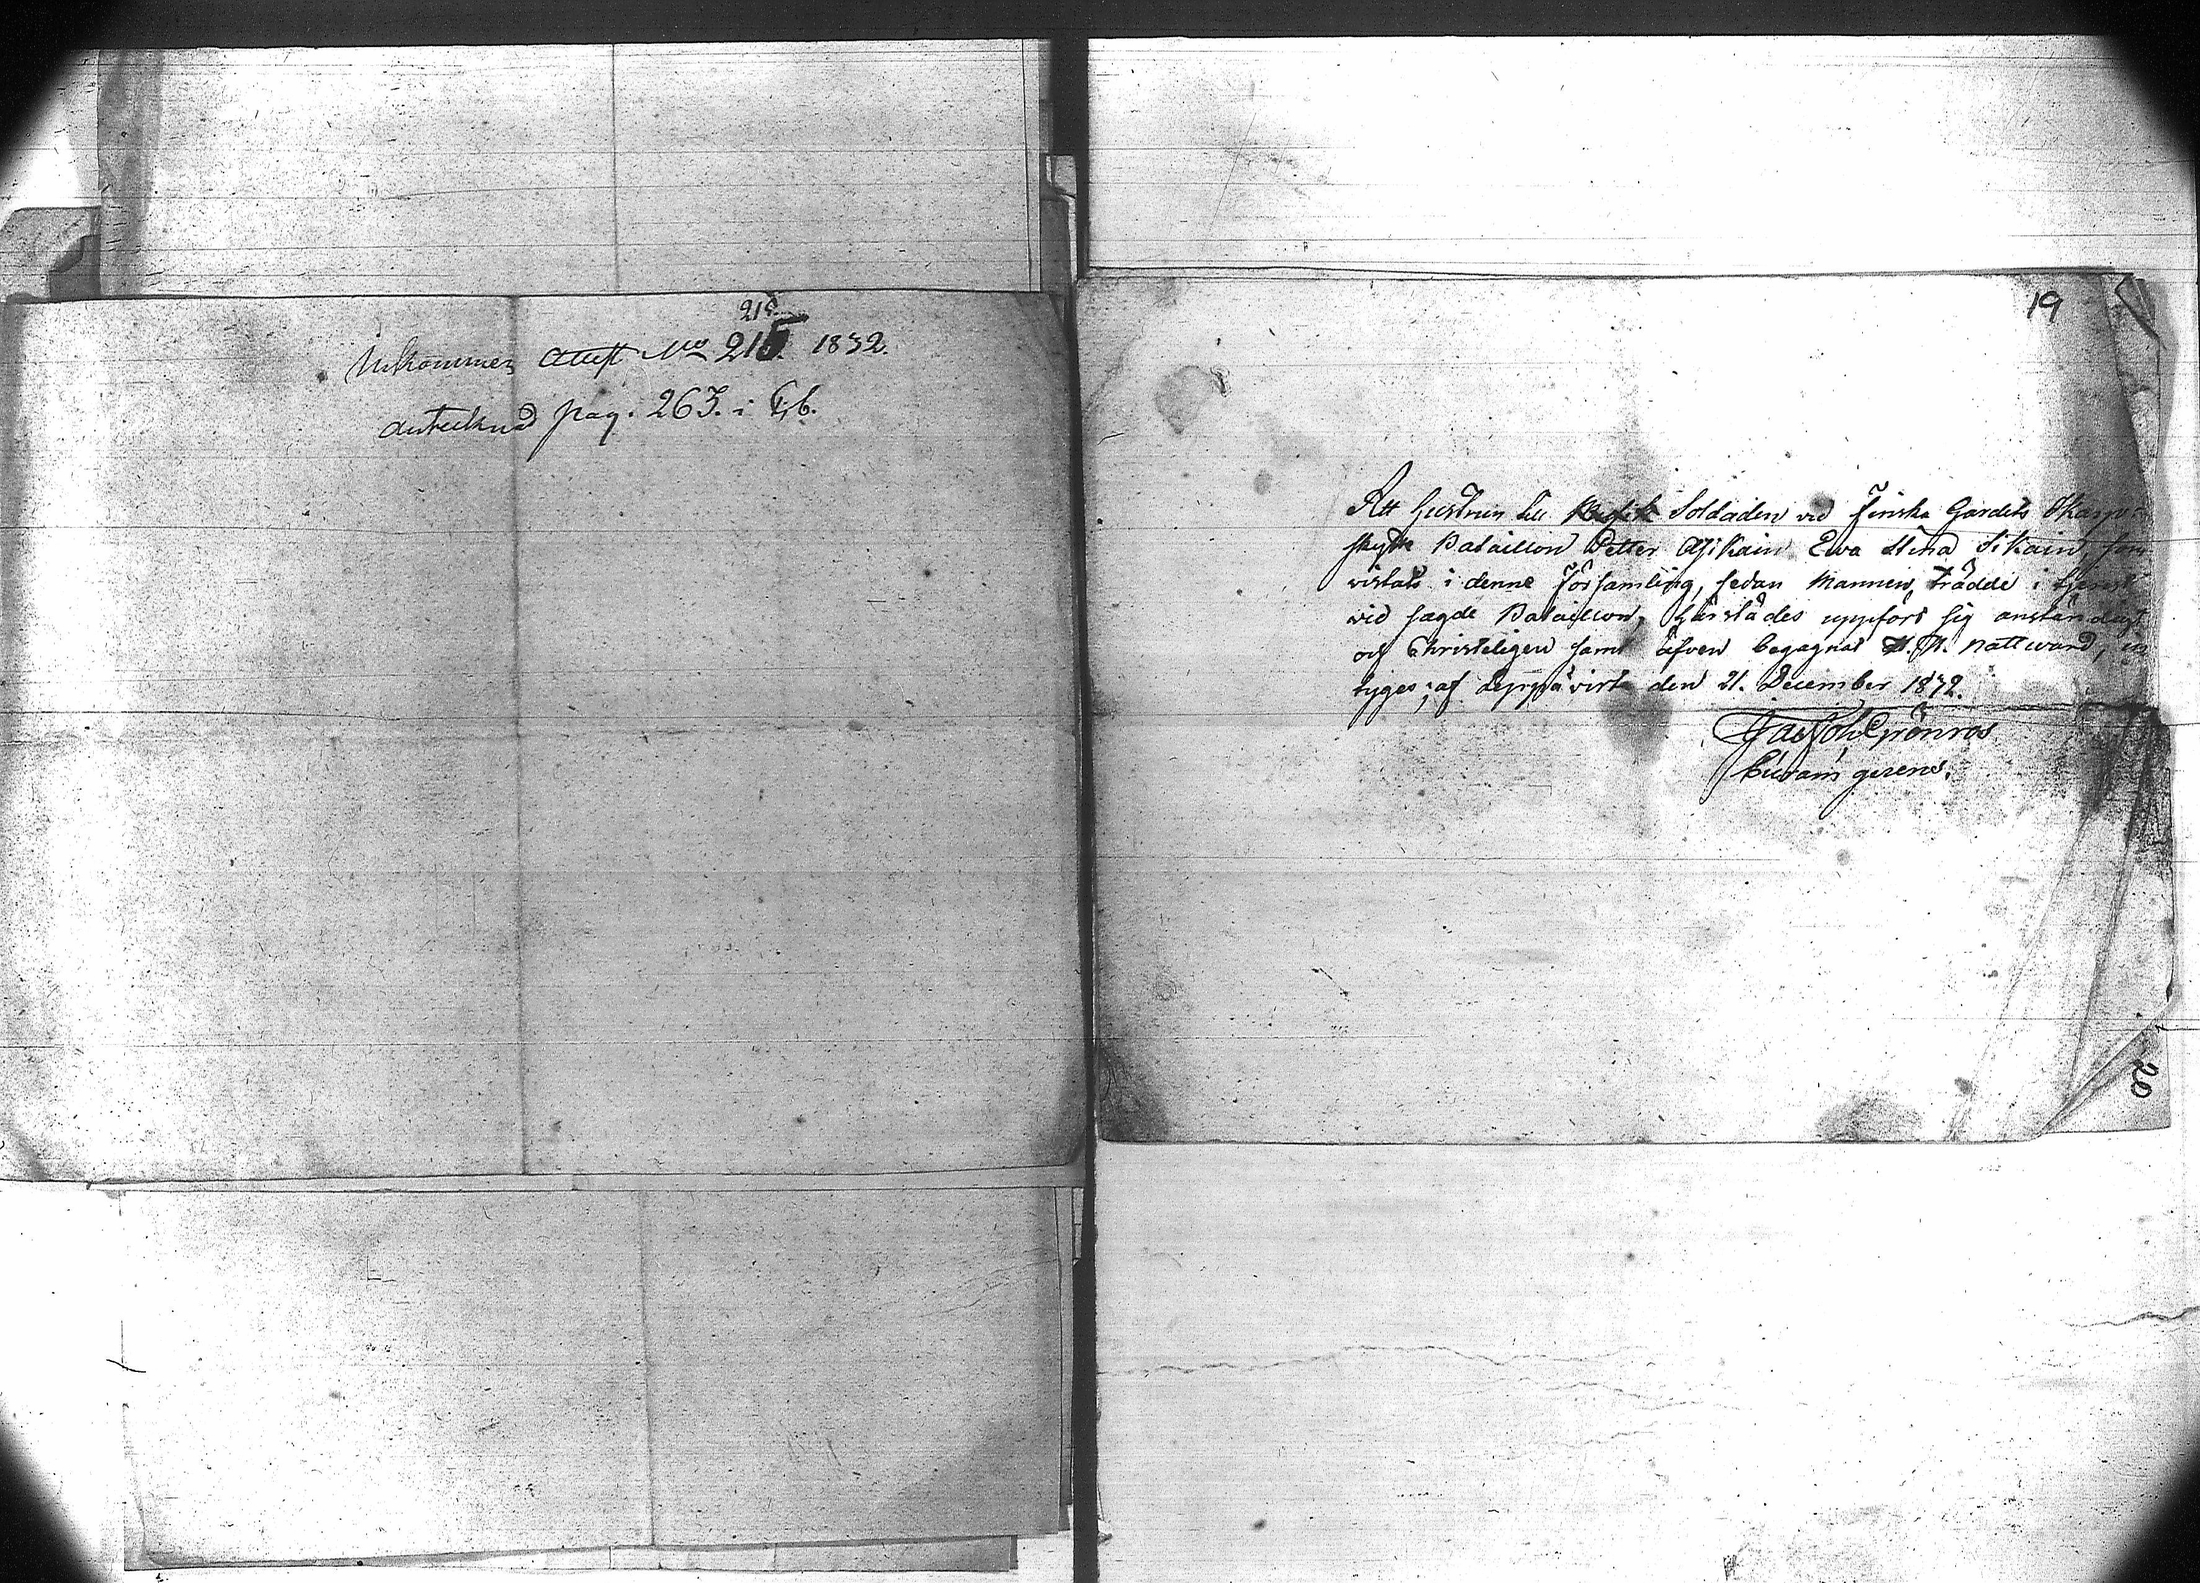 215.
Inkommen attest No 215. 1832.
antecknad pag. 263. i Kb.
19
Att Hustrun till Soldaten vid Finska Gardets Skarp-
skytte Bataillon Petter Eva Stina Sikain, som
vistats i denne Församling, sedan Mannen trädde i tjenst
vid sagde Bataillon, härstädes uppfört sig anständigt
och Christeligen samt äfven begagnat H. H. Nattward,
tyges; af Leppävirta den 21. December 1832.
Jac Joh Grönros
Curam gerens.
20